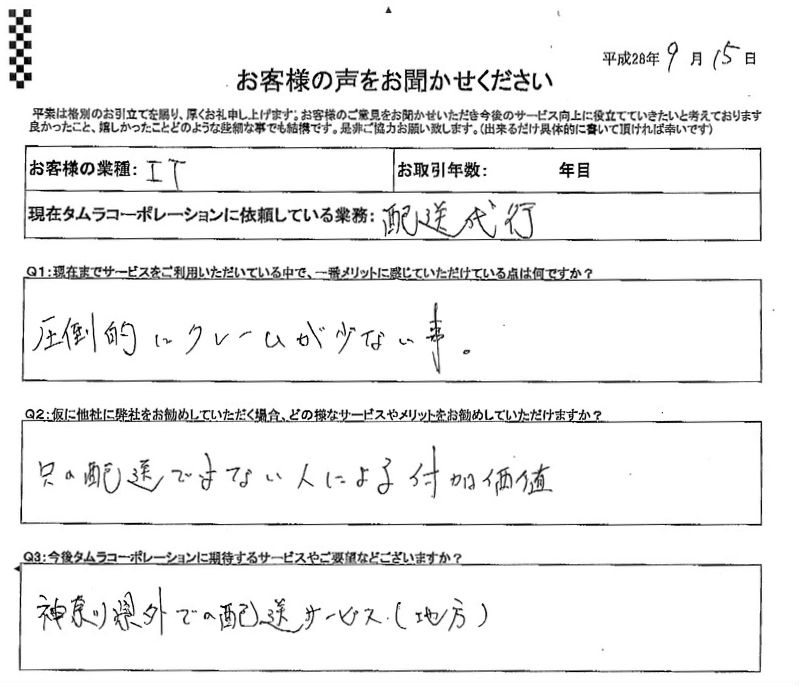 平成28年 9 月 15 日
お客様の声をお聞かせください
平素は格別のお引立てを賜り、厚くお礼申し上げます。お客様のご意見をお聞かせいただき今後のサービス向上に役立てていきたいと考えております
良かったこと、嬉しかったことどのような些細な事でも結構です。是非ご協力お願い致します。(出来るだけ具体的に書いて頂ければ幸いです)
お客様の業種: IT お取引年数: 年目
現在タムラコーポレーションに依頼している業務: 配送代行
Q1:現在までサービスをご利用いただいている中で、一番メリットに感じていただけている点は何ですか?
圧倒的にクレームが少ない事。
Q2:仮に他社に弊社をお勧めしていただく場合、どの様なサービスやメリットをお勧めしていただけますか?
只の配送ではない人による付加価値
Q3:今後タムラコーポレーションに期待するサービスやご要望などございますか?
神奈川県外での配送サービス.(地方)